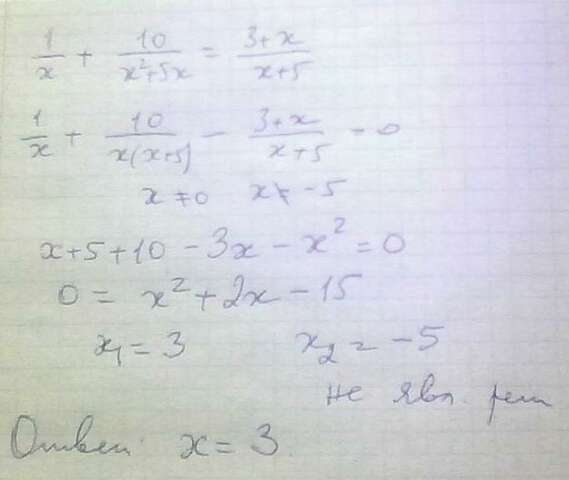 1/x + 10/(x²+5x) = (3+x)/(x+5)
1/x + 10/(x(x+5)) - (3+x)/(x+5) = 0
x≠0 x≠-5
x+5+10-3x-x²=0
0 = x²+2x-15
x₁=3 x₂=-5
не явл. реш
Ответ: x=3.